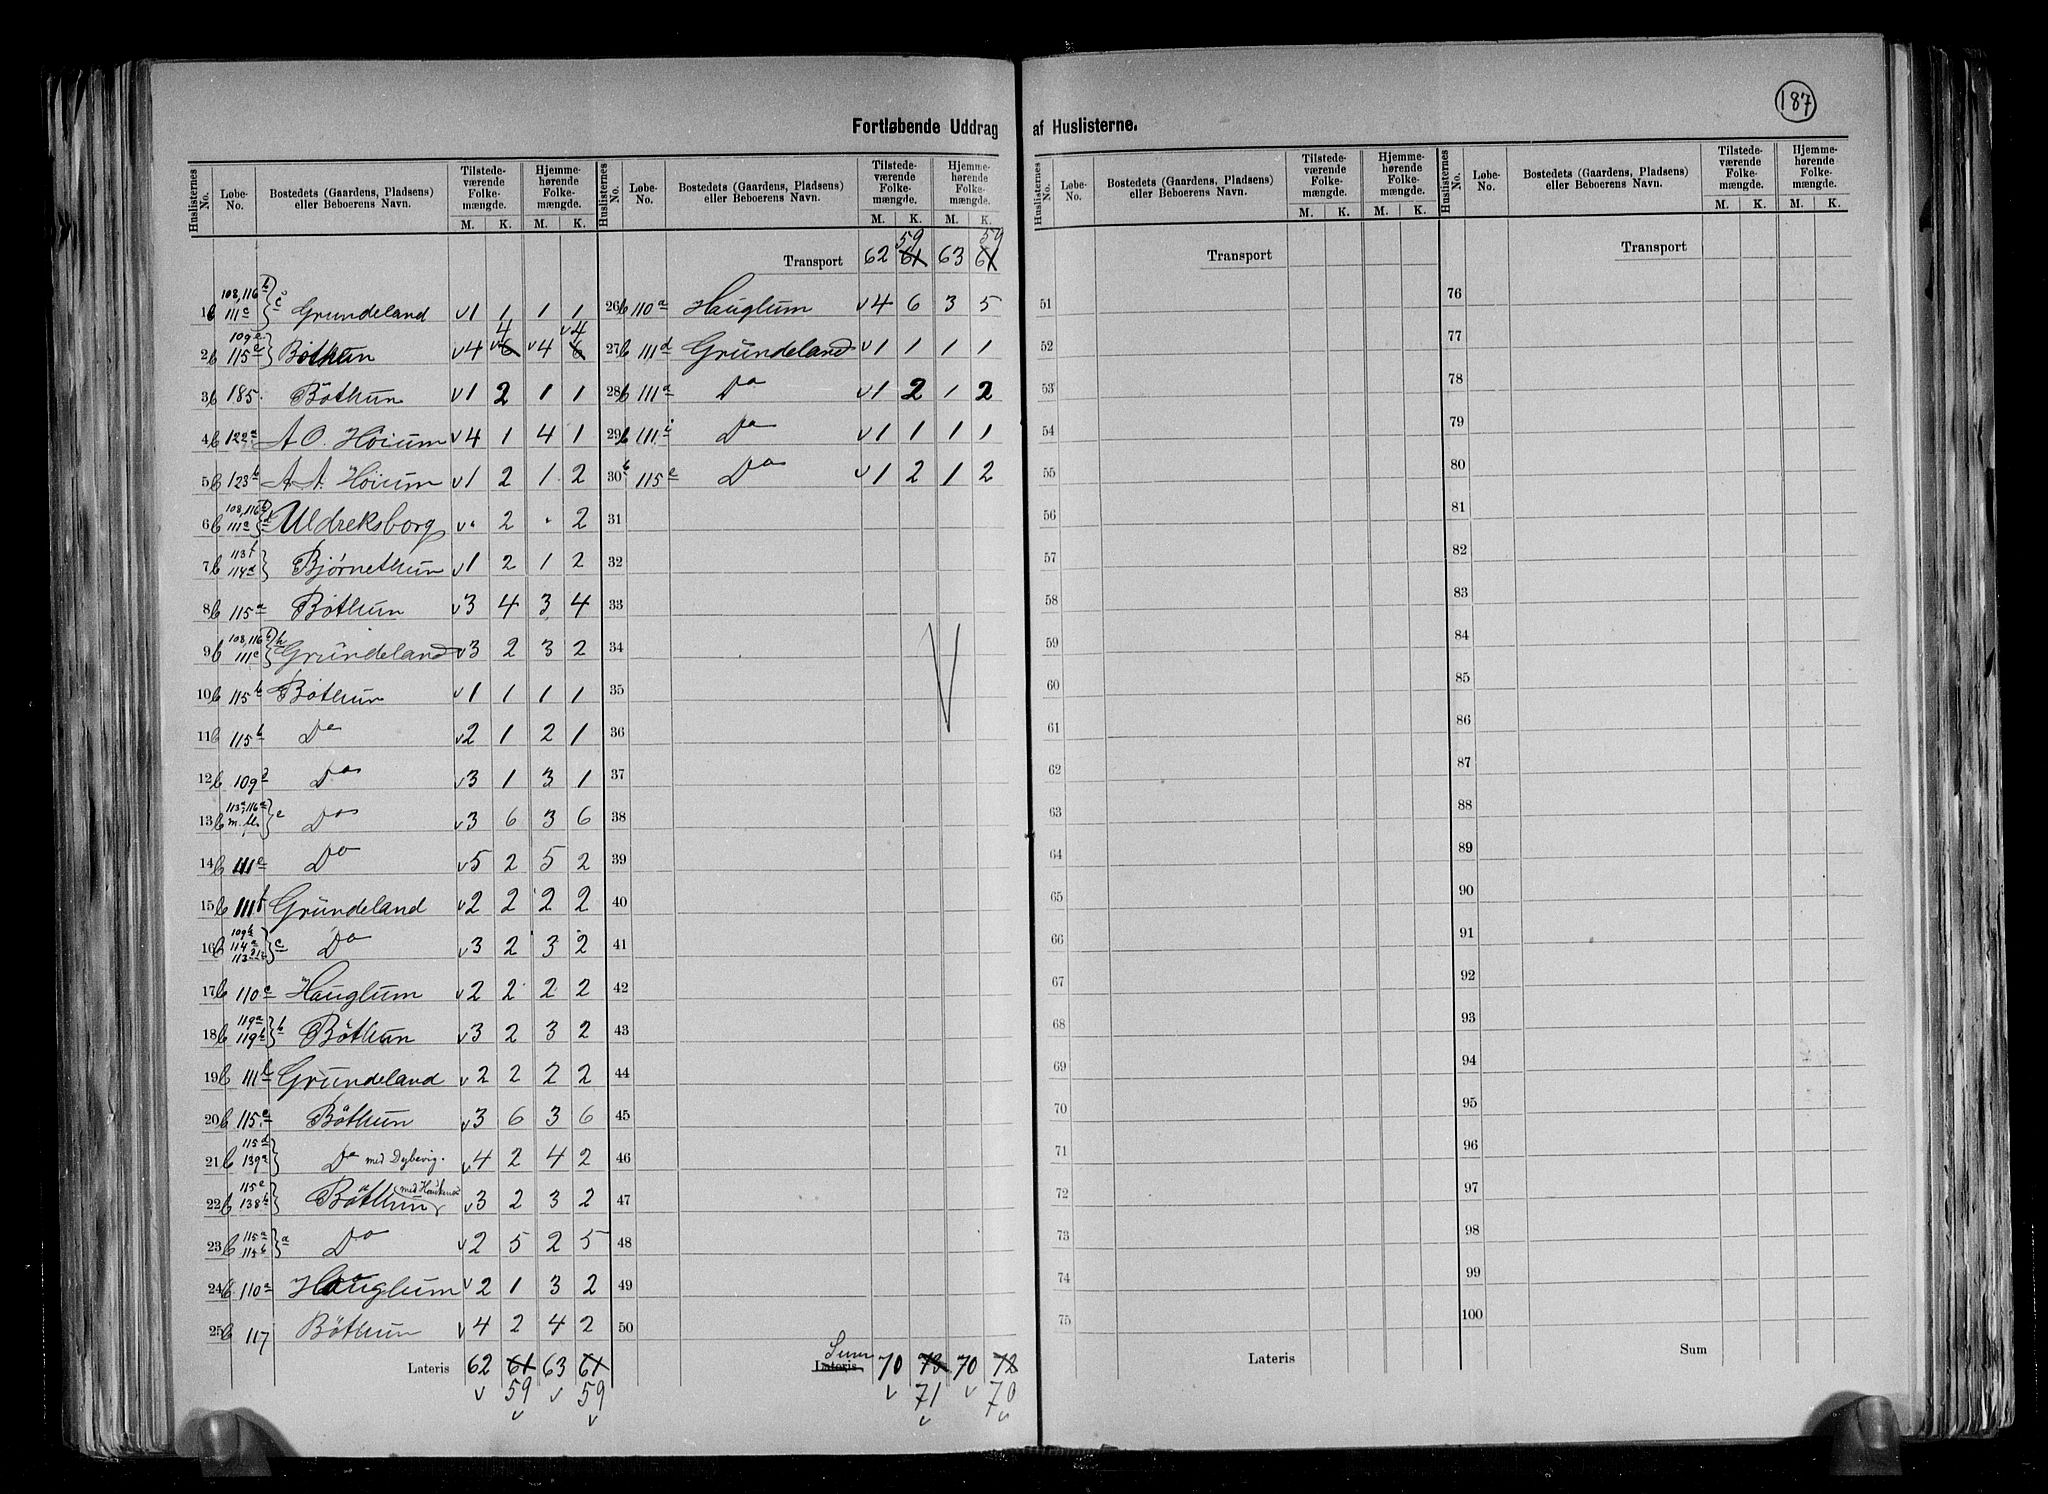 187
Fortløbende Uddrag af Huslisterne.
Huslisternes No. Løbe-No. Bostedets (Gaardens, Pladsens) eller Beboerens Navn. Tilstedeværende Folkemængde. M. K. Hjemmehørende Folkemængde. M. K.
Huslisternes No. Løbe-No. Bostedets (Gaardens, Pladsens) eller Beboerens Navn. Tilstedeværende Folkemængde. M. K. Hjemmehørende Folkemængde. M. K.
Huslisternes No. Løbe-No. Bostedets (Gaardens, Pladsens) eller Beboerens Navn. Tilstedeværende Folkemængde. M. K. Hjemmehørende Folkemængde. M. K.
Huslisternes No. Løbe-No. Bostedets (Gaardens, Pladsens) eller Beboerens Navn. Tilstedeværende Folkemængde. M. K. Hjemmehørende Folkemængde. M. K.
1 b 108, 116 b 111 c } c Grundeland v 1 1 1 1
2 b 109 e 115 c } Böthun v 4 v 6 4 v 4 6 v 4
3 b 185. Böthun v 1 2 1 1
4 b 122 a A O. Höium v 4 1 4 1
5 b 123 b A. A. Höium v 1 2 1 2
6 b 108, 116 b 111 a } Uldreksborg v . 2 . 2
7 b 113 f 114 d } Bjørnethun v 1 2 1 2
8 b 115 a Böthun v 3 4 3 4
9 b 108, 116 b 111 c } b Grundeland v 3 2 3 2
10 b 115 b Böthun v 1 1 1 1
11 b 115 b Do v 2 1 2 1
12 b 109 d Do v 3 1 3 1
13 b 113 a, 116 a m. fl. } c Do v 3 6 3 6
14 b 111 e Do v 5 2 5 2
15 b 111 f Grundeland v 2 2 2 2
16 b 109 b 114 a 113 } c Do v 3 2 3 2
17 b 110 c Hauglum v 2 2 2 2
18 b 119 a 119 b } b Böthun v 3 2 3 2
19 b 111 b Grundeland v 2 2 2 2
20 b 115. e Böthun v 3 6 3 6
21 b 115 d 139 a } Do med Dybevig. v 4 2 4 2
22 b 115 c 138 b } Böthun v 3 2 3 2
23 b 115 a 115 b } a Do v 2 5 2 5
24 b. 110 a Hauglum v 2 1 3 2
25 b 117 Böthun v 4 2 4 2
Lateris 62 61 63 61
v 59 v v 59 v
Transport 62 61 59 63 61 59
26 b 110 a Hauglum v 4 6 3 5
27 b 111 d Grundeland v 1 1 1 1
28 b 111 a Do v 1 2 1 2
29 b 111 i Do v 1 1 1 1
30 b 115 e Do v 1 2 1 2
31
32
33
34
35
36
37
38
39
40
41
42
43
44
45
46
47
48
49
50
Sum
Lateris 70 73 70 72
v 71 v v 70 v
Transport
51
52
53
54
55
56
57
58
59
60
61
62
63
64
65
66
67
68
69
70
71
72
73
74
75
Lateris
Transport
76
77
78
79
80
81
82
83
84
85
86
87
88
89
90
91
92
93
94
95
96
97
98
99
100
Sum